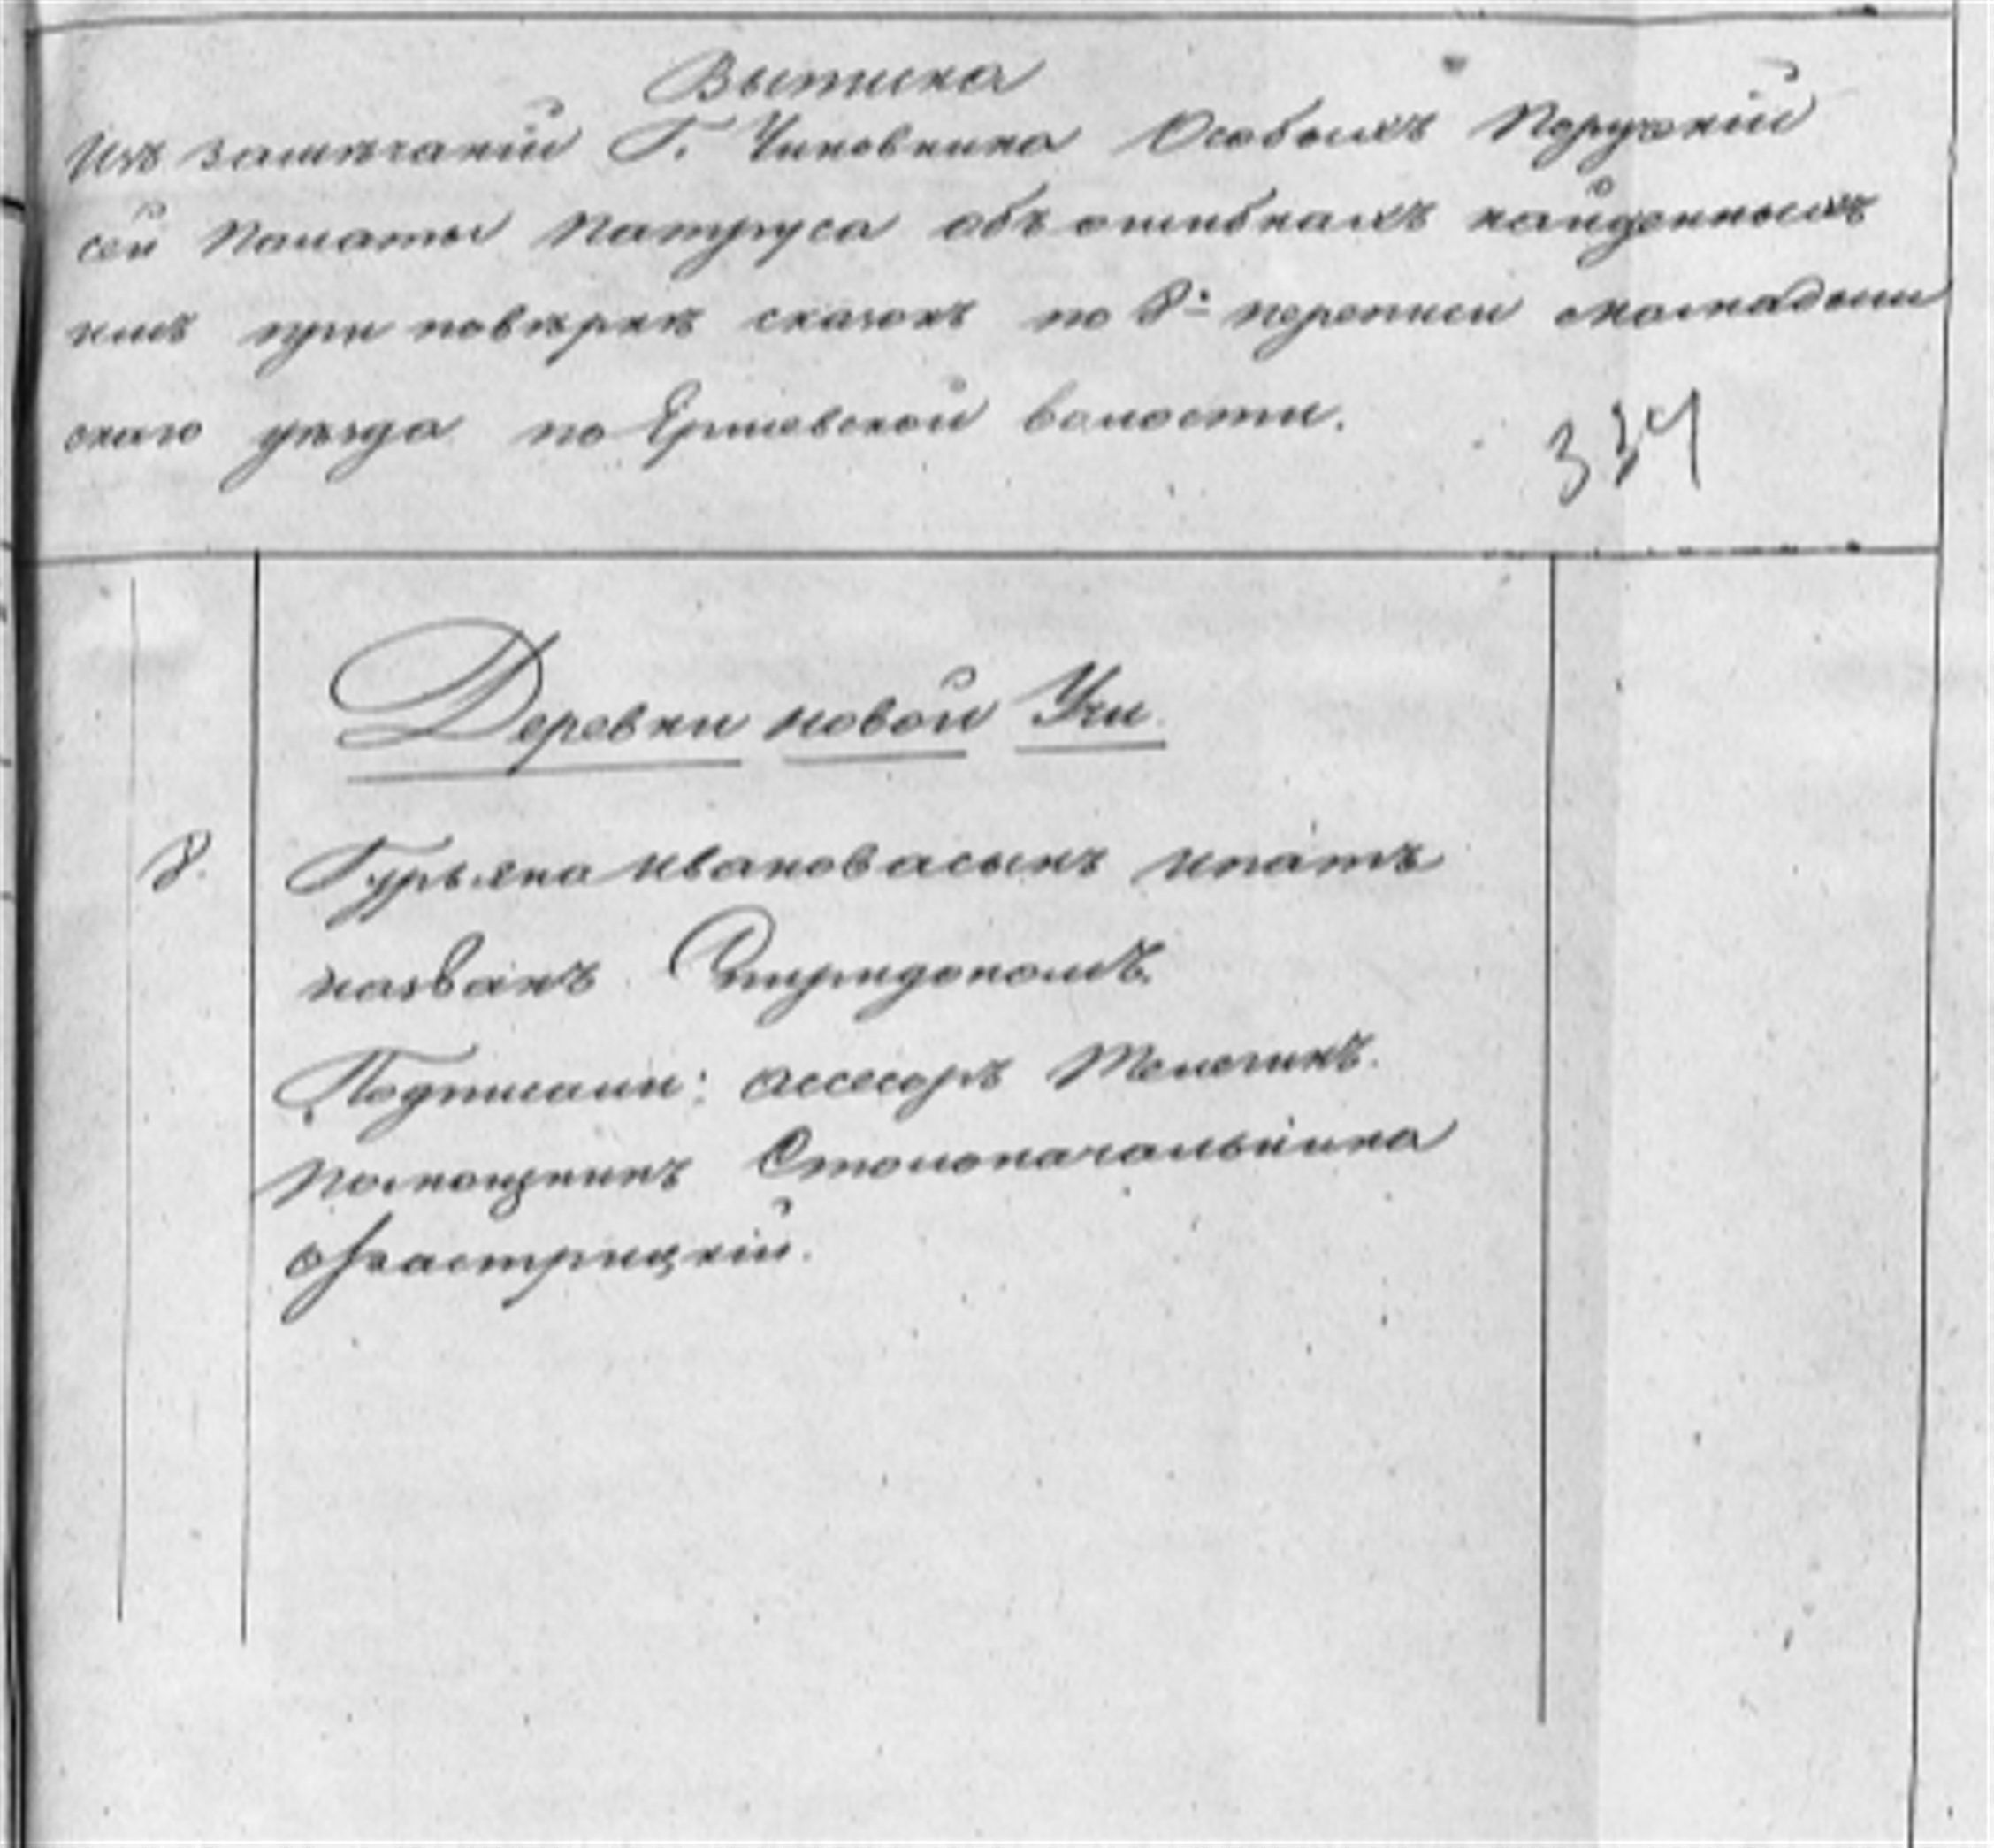 Выписка
Изъ замѣчаній Г. Чиновника Особыхъ Порученій
сей Палаты Патруса объ ошибкахъ найденныхъ
имъ при повѣркѣ сказокъ по 8й переписи
скаго уѣзда по Ершевской волости.
334
Деревни новой Учи
8. Гурьяна Иванова сынъ Ипатъ
названъ Спиридономъ.
Подписали: Ассесоръ Телегинъ.
Помощникъ Столоначальника